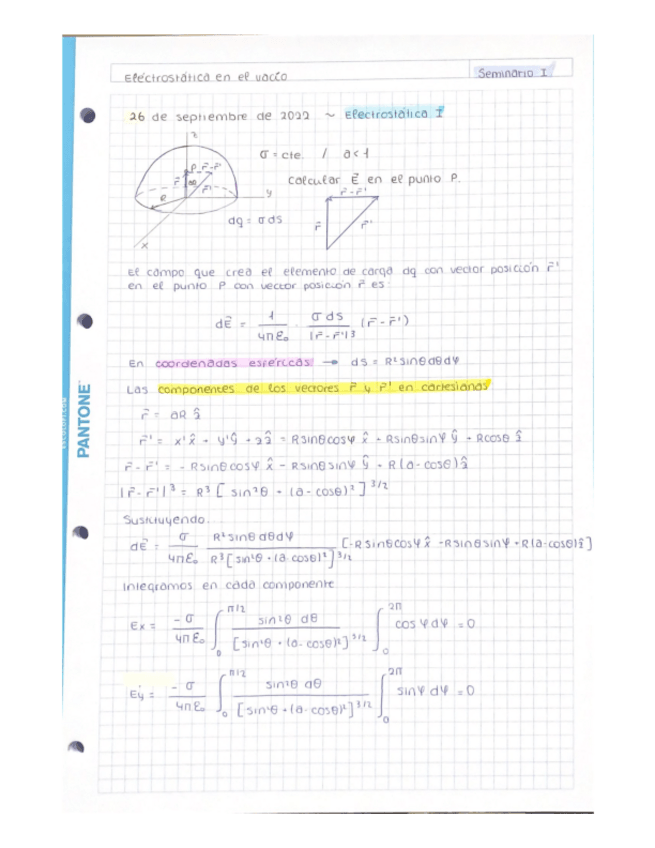 Electrostática en el vacío
Seminario I
26 de septiembre de 2022 ~ Electrostática I
z
σ = cte. / a<1
Calcular E⃗ en el punto P.
P r⃗-r⃗'
r⃗
r⃗'
R
y
x
dq = σ ds
r⃗-r⃗'
r⃗
r⃗'
El campo que crea el elemento de carga dq con vector posición r⃗'
en el punto P con vector posición r⃗ es:
dE⃗ = 1/4πε₀ · σ ds/|r⃗-r⃗'|³ (r⃗-r⃗')
En coordenadas esféricas → ds = R²sinθdθdφ
Las componentes de los vectores r⃗ y r⃗' en cartesianas
r⃗ = aR ẑ
r⃗' = x'x̂ + y'ŷ + zẑ = Rsinθcosφ x̂ + Rsinθsinφ ŷ + Rcosθ ẑ
r⃗-r⃗' = -Rsinθcosφ x̂ - Rsinθsinφ ŷ + R(a-cosθ)ẑ
|r⃗-r⃗'|³ = R³[sin²θ + (a-cosθ)²]^3/2
Sustituyendo.
dE⃗ = σ/4πε₀ R²sinθdθdφ/R³[sin²θ + (a-cosθ)²]^3/2 [-Rsinθcosφ x̂ -Rsinθsinφ + R(a-cosθ)ẑ]
Integramos en cada componente
Ex = -σ/4πε₀ ∫₀^π/2 sin²θ dθ/[sin²θ + (a-cosθ)²]^3/2 ∫₀^2π cosφdφ = 0
Ey = -σ/4πε₀ ∫₀^π/2 sin²θ dθ/[sin²θ + (a-cosθ)²]^3/2 ∫₀^2π sinφdφ = 0
PANTONE